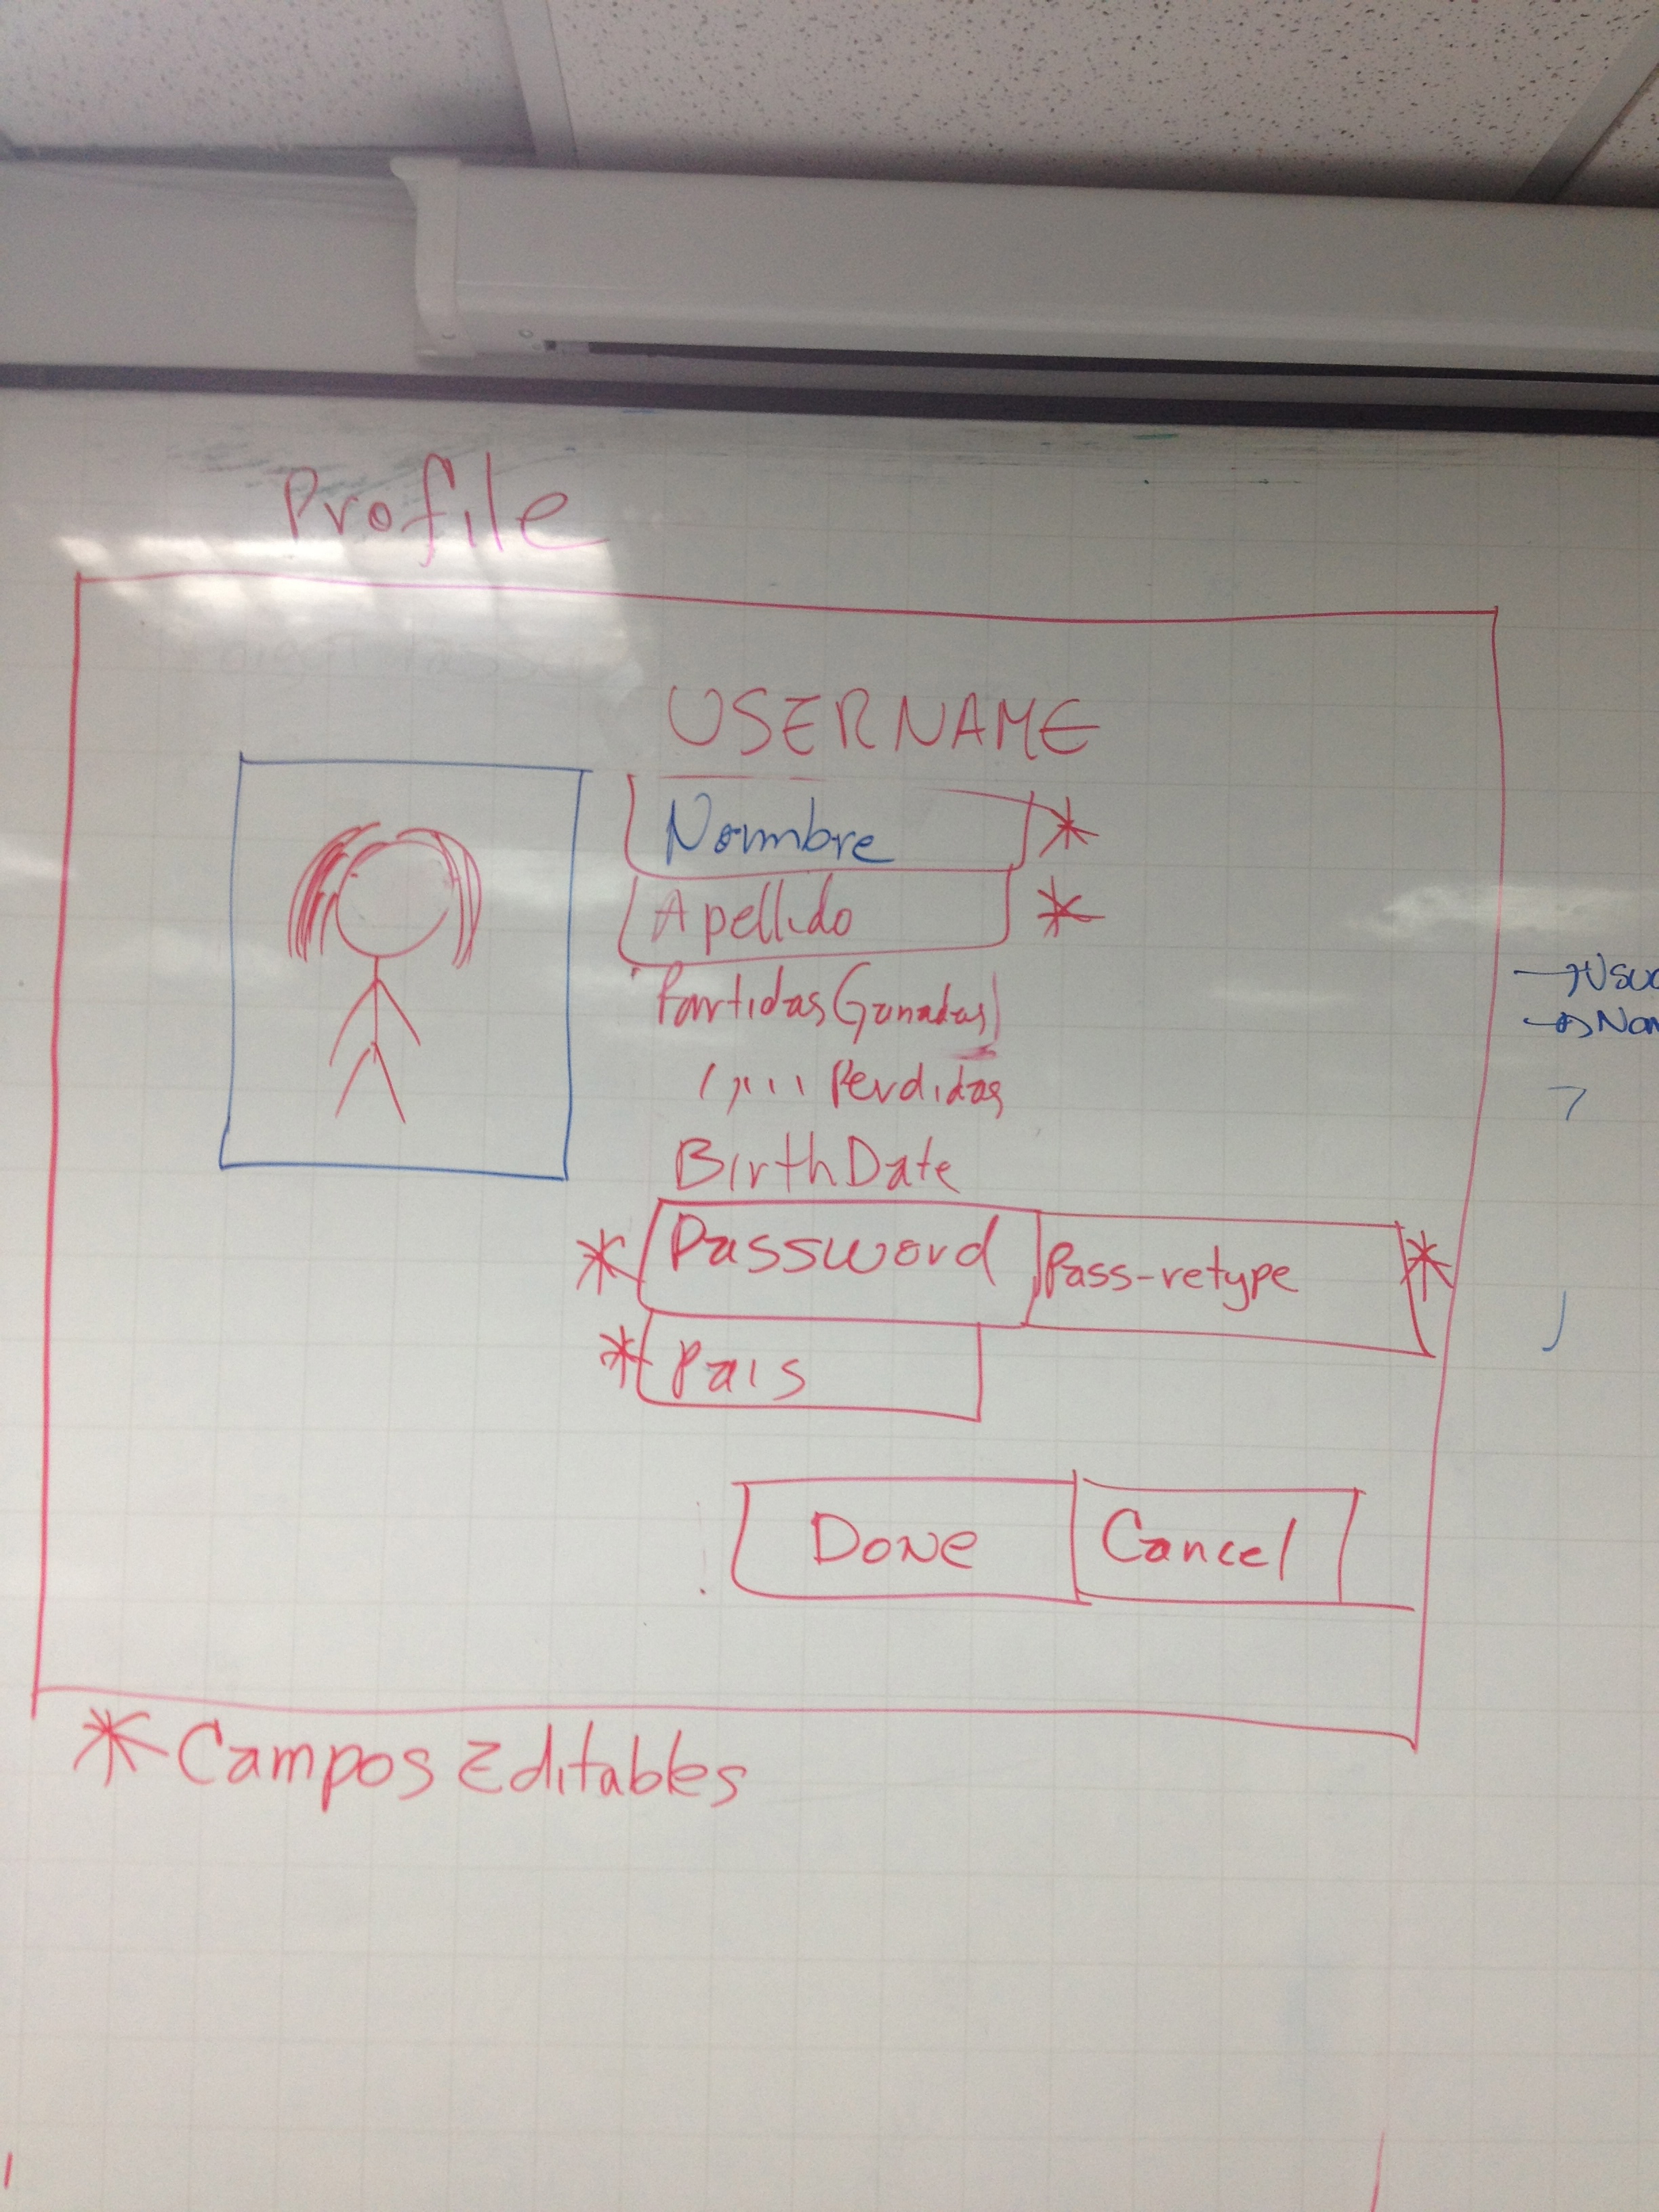 Profile
USERNAME
Nombre *
Apellido *
Partidas Ganadas
" Perdidas
BirthDate
* Password Pass-retype *
* Pais
Done Cancel
* Campos Editables